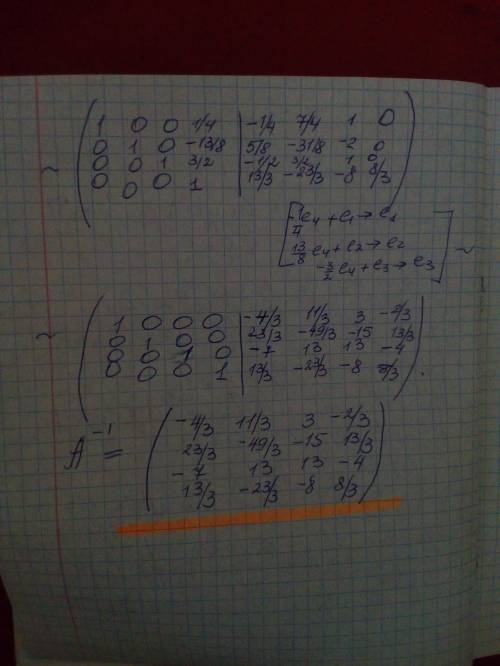 ~ ( 1 0 0 1/4 | -1/4 7/4 1 0 )
0 1 0 -13/8 | 5/8 -31/8 -2 0
0 0 1 3/2 | -1/2 3/2 1 0
0 0 0 1 | 13/3 -23/3 -8 8/3
[ -1/4 e4 + e1 → e1
13/8 e4 + e2 → e2
-3/2 e4 + e3 → e3 ] ~
~ ( 1 0 0 0 | -4/3 11/3 3 -2/3 )
0 1 0 0 | 23/3 -49/3 -15 13/3
0 0 1 0 | -7 13 13 -4
0 0 0 1 | 13/3 -23/3 -8 8/3 .
A⁻¹ = ( -4/3 11/3 3 -2/3 )
23/3 -49/3 -15 13/3
-7 13 13 -4
13/3 -23/3 -8 8/3